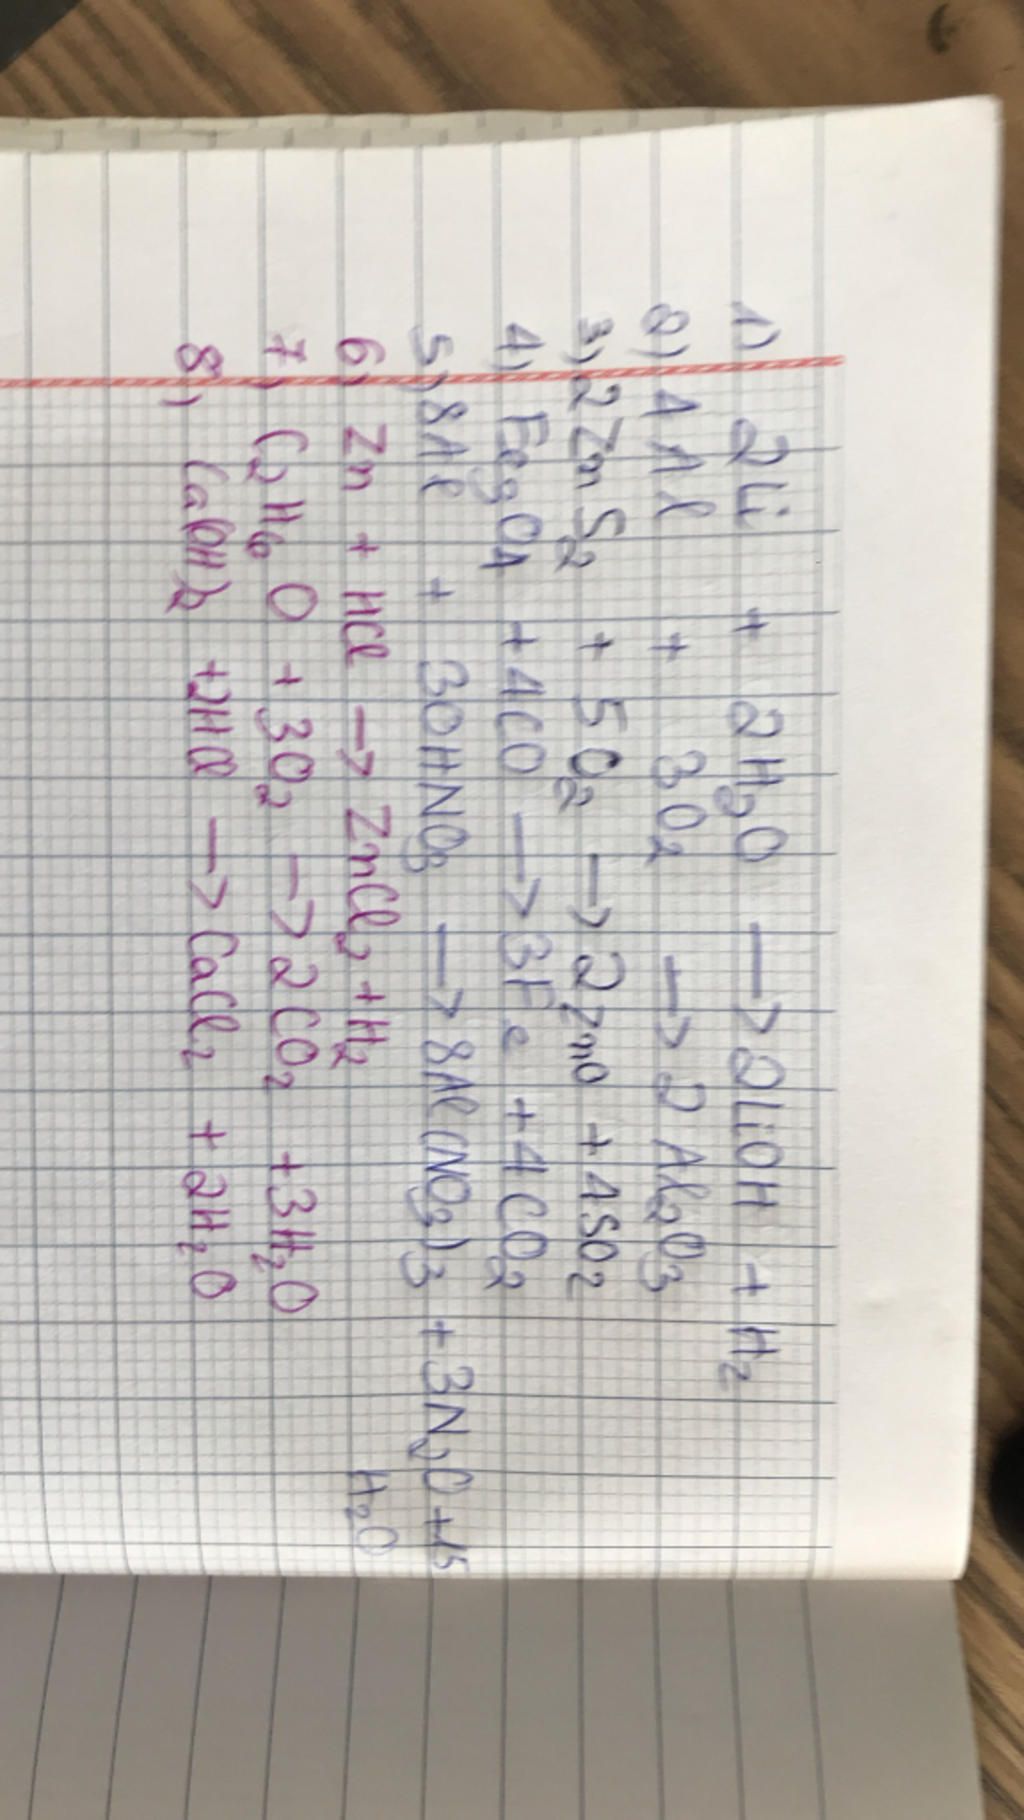 1) 2Li + 2H2O —> 2LiOH + H2
2) 4Al + 3O2 —> 2Al2O3
3) 2ZnS2 + 5O2 —> 2ZnO + 4SO2
4) Fe3O4 + 4CO —> 3Fe + 4CO2
5) 8Al + 30HNO3 —> 8Al(NO3)3 + 3N2O + 15
H2O
6) Zn + HCl —> ZnCl2 + H2
7) C2H6O + 3O2 —> 2CO2 + 3H2O
8) Ca(OH)2 + 2HCl —> CaCl2 + 2H2O